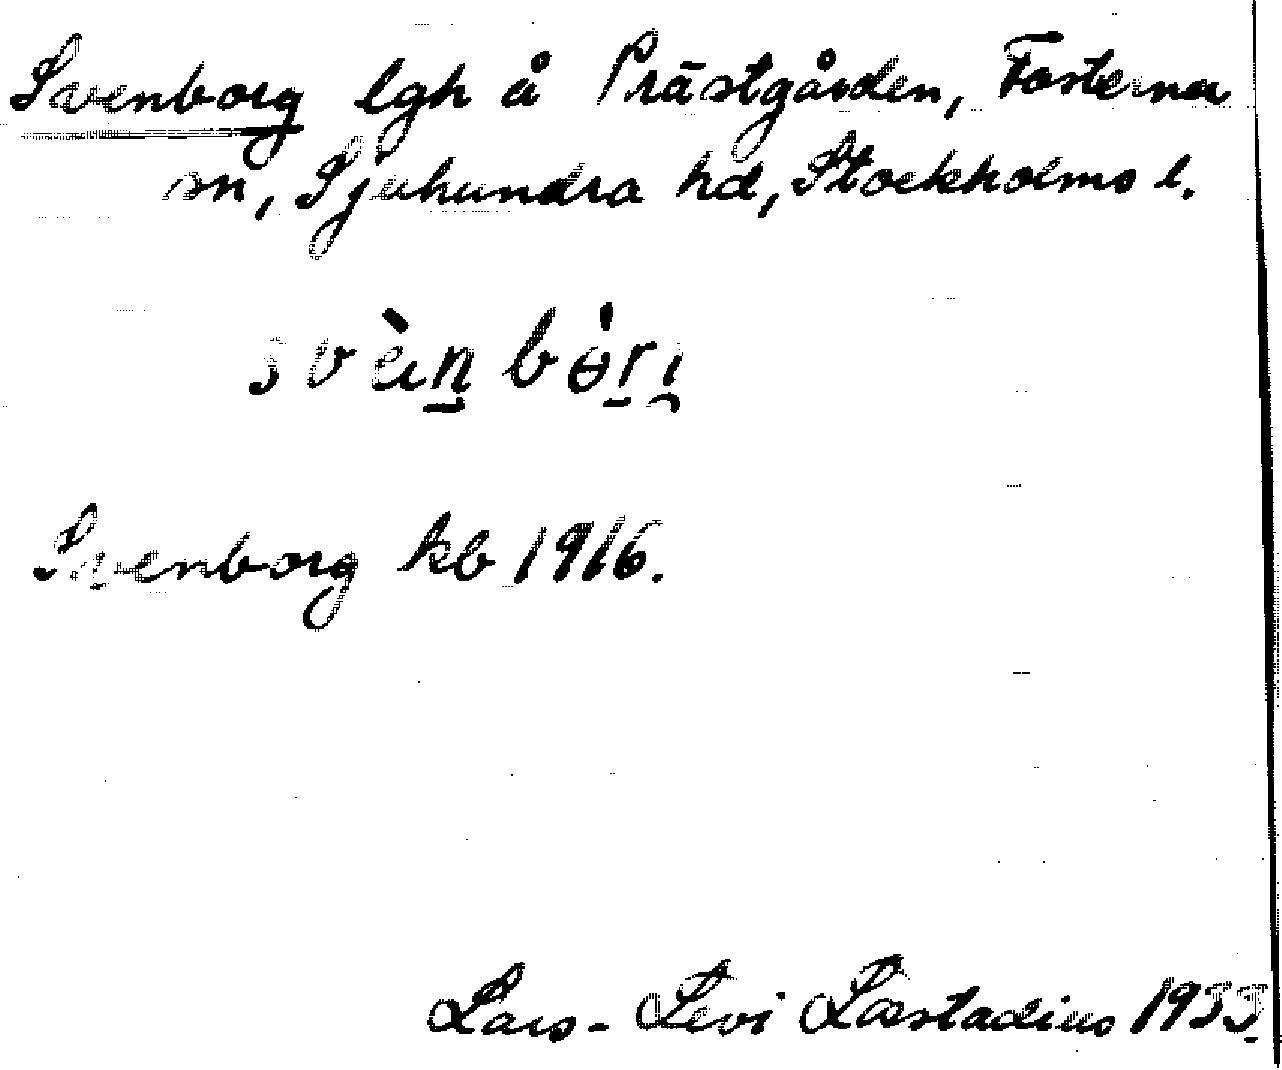 Svenborg lgh å Prästgården, Fasterna
sn, Sjuhundra hd, Stockholms l.
svèn bòri
Svenborg kb 1916.
Lars-Levi Læstadius 1933.